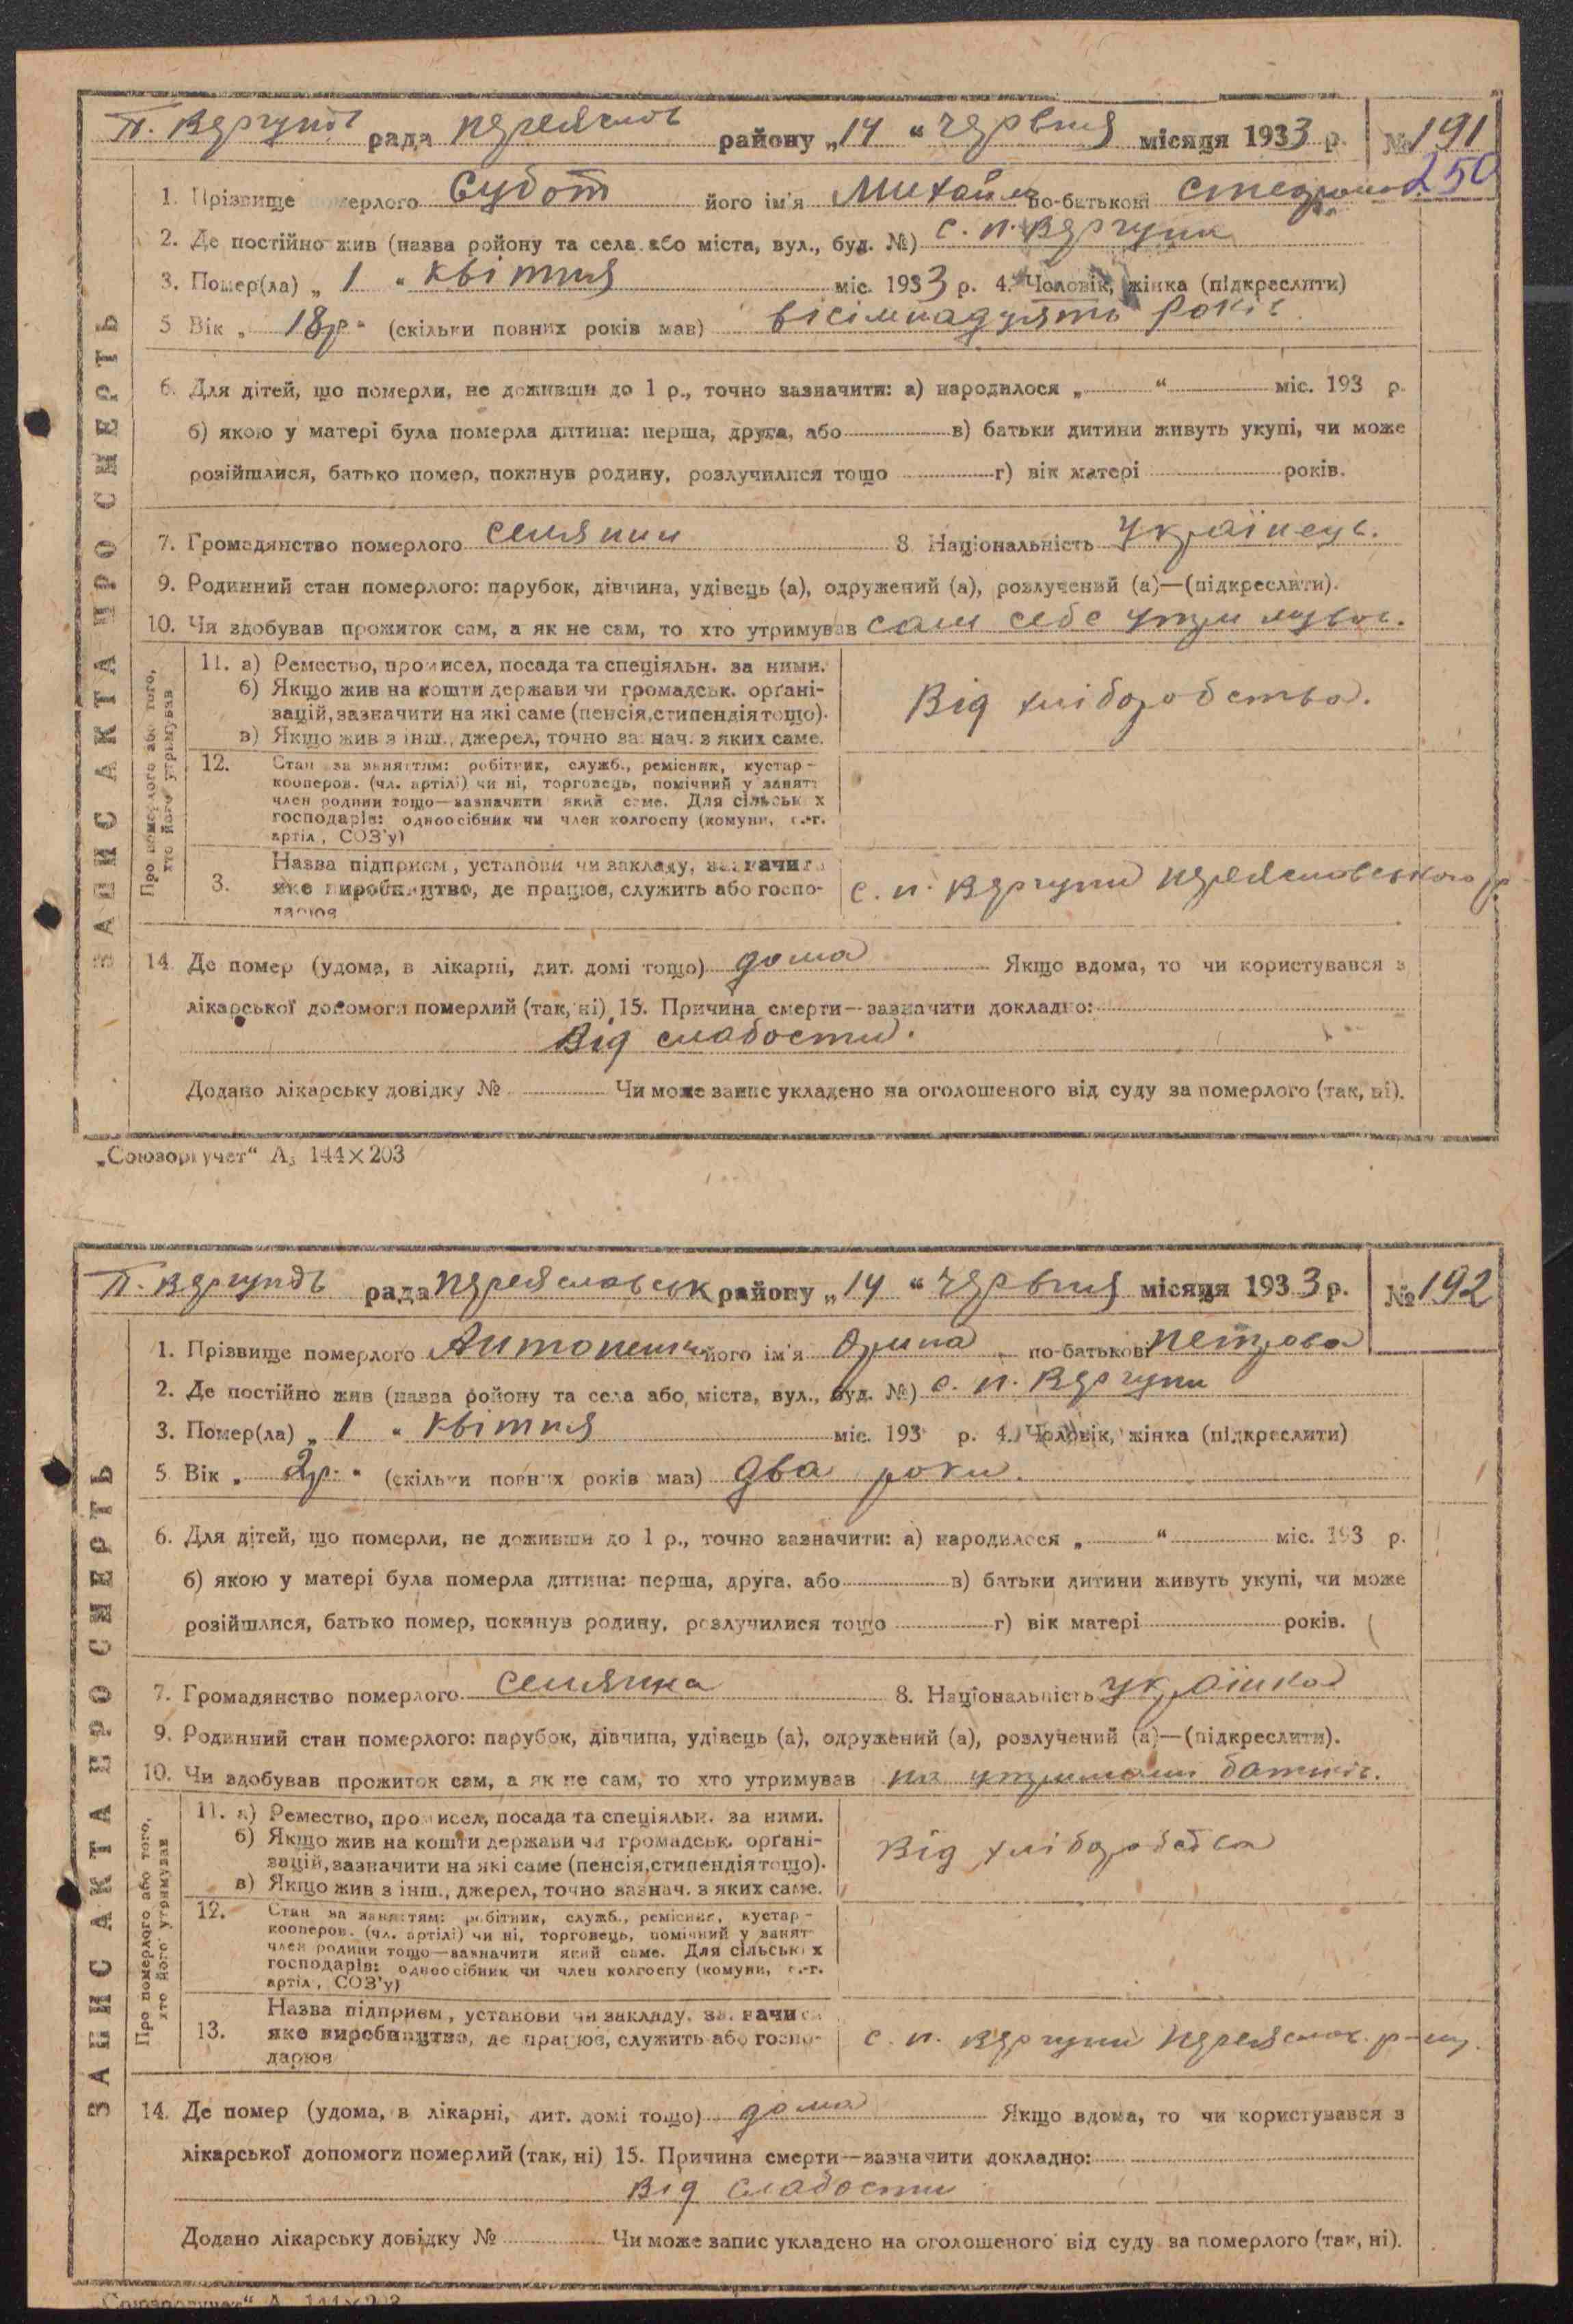 П. Вергунів рада Переяслов району „14“ червня місяця 1933 р. № 191
250
1. Прізвище померлого Субот його ім'я Михайло по-батькові
2. Де постійно жив (назва району та села або міста, вул., буд. №) с. п. Вергуни
3. Помер(ла) „1“ квітня міс. 1933 р. 4. Чоловік, жінка (підкреслити)
5 Вік „18р“ (скільки повних років мав) вісімнадцять років
6. Для дітей, що померли, не доживши до 1 р., точно зазначити: а) народилося „ “ міс. 193 р.
б) якою у матері була померла дитина: перша, друга, або в) батьки дитини живуть укупі, чи може
розійшлися, батько помер, покинув родину, розлучилися тощо г) вік матері років.
7. Громадянство померлого селянин 8. Національність українець.
9. Родинний стан померлого: парубок, дівчина, удівець (а), одружений (а), розлучений (а)—(підкреслити).
10. Чи здобував прожиток сам, а як не сам, то хто утримував сам себе
ЗАПИС АКТА ПРО СМЕРТЬ
Про померлого або того, хто його утримував
11. а) Ремество, промисел, посада та спеціяльн. за ними.
б) Якщо жив на кошти держави чи громадськ. орґані-
зацій, зазначити на які саме (пенсія, стипендія тощо).
в) Якщо жив з інш., джерел, точно зазнач. з яких саме.
Від хліборобства.
12. Стан за заняттям: робітник, служб., ремісник, кустар-
кооперов. (чл. артілі) чи ні, торговець, помічний у занятт
член родини тощо—зазначити який саме. Для сільськ х
господарів: одноосібник чи член колгоспу (комуни, с.-г.
артіл, СОЗ'у)
3. Назва підприєм, установи чи закладу, зазначити
яке виробництво, де працює, служить або госпо-
дарює
с. п. Вергуни Переясловського р
14. Де помер (удома, в лікарні, дит. домі тощо) дома Якщо вдома, то чи користувався з
лікарської допомоги померлий (так, ні) 15. Причина смерти—зазначити докладно:
Від слабости.
Додано лікарську довідку № Чи може запис укладено на оголошеного від суду за померлого (так, ні).
„Союзоргучет“ А5 144×203
П. Вергунів рада Переяславськ району „14“ червня місяця 1933 р. № 192
1. Прізвище померлого його ім'я Орина по-батькові Петрова
2. Де постійно жив (назва району та села або міста, вул., буд. №) с. п. Вергуни
3. Помер(ла) „1“ квітня міс. 193 р. 4. Чоловік, жінка (підкреслити)
5 Вік „2р.“ (скільки повних років мав) два роки.
6. Для дітей, що померли, не доживши до 1 р., точно зазначити: а) народилося „ “ міс. 193 р.
б) якою у матері була померла дитина: перша, друга, або в) батьки дитини живуть укупі, чи може
розійшлися, батько помер, покинув родину, розлучилися тощо г) вік матері років.
7. Громадянство померлого селянка 8. Національність українка
9. Родинний стан померлого: парубок, дівчина, удівець (а), одружений (а), розлучений (а)—(підкреслити).
10. Чи здобував прожиток сам, а як не сам, то хто утримував на утриманні батьків.
ЗАПИС АКТА ПРО СМЕРТЬ
Про померлого або того, хто його утримував
11. а) Ремество, промисел, посада та спеціяльн. за ними.
б) Якщо жив на кошти держави чи громадськ. орґані-
зацій, зазначити на які саме (пенсія, стипендія тощо).
в) Якщо жив з інш., джерел, точно зазнач. з яких саме.
Від
12. Стан за заняттям: робітник, служб., ремісник, кустар-
кооперов. (чл. артілі) чи ні, торговець, помічний у занят
член родини тощо—зазначити який саме. Для сільськ х
господарів: одноосібник чи член колгоспу (комуни, с.-г.
артіл, СОЗ'у)
13. Назва підприєм, установи чи закладу, зазначити
яке виробництво, де працює, служить або госпо-
дарює
с. п. Вергуни Переяслов. р-ну.
14. Де помер (удома, в лікарні, дит. домі тощо) дома Якщо вдома, то чи користувався з
лікарської допомоги померлий (так, ні) 15. Причина смерти—зазначити докладно:
Від слабости
Додано лікарську довідку № Чи може запис укладено на оголошеного від суду за померлого (так, ні).
„Союзоргучет“ А 144×203